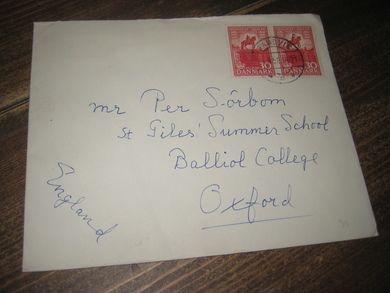 30 30
DANMARK DANMARK
mr Per Sörbom
St Giles' Summer School
Balliol College
Oxford
England